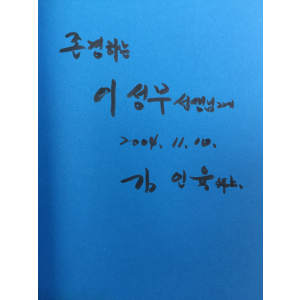 존경하는
이성부 선생님께
2004. 11. 10.
김인육 드림.